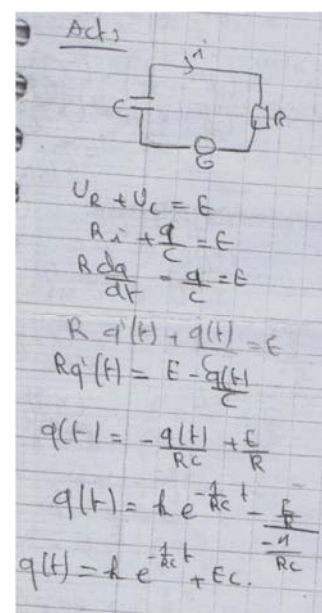 Act 2
i
C
R
G
U_R + U_C = E
Ri + q/C = E
R dq/dt - q/C = E
R q'(t) + q(t)/C = E
Rq'(t) = E - q(t)/C
q(t) = - q(t)/RC + E/R
q(t) = k e^{-1/RC t} - (E/R)/(-1/RC)
q(t) = k e^{-1/RC t} + EC.